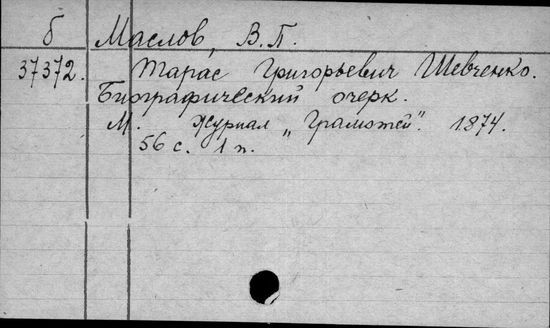 б Маслов, В.П.
37372. Тарас Григорьевич Шевченко.
Биографический очерк.
М. Журнал „Грамотей". 1874.
56 с. 1 п.